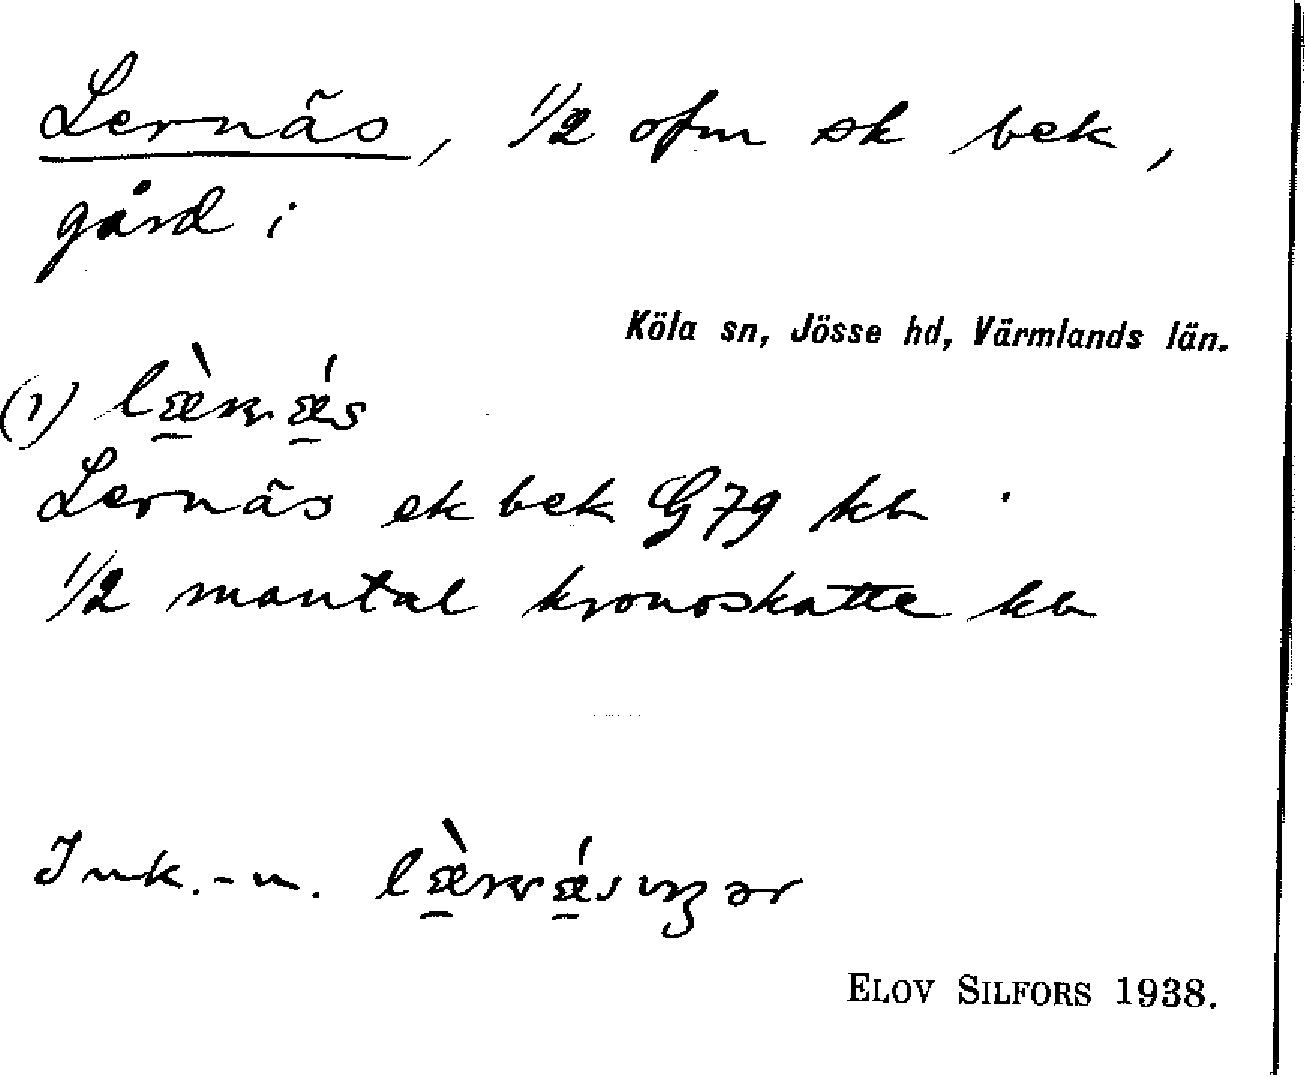 Lernäs, 1/2 ofm sk bek,
gård i
Köla sn, Jösse hd, Värmlands län.
(1)
Lernäs ek bek G79 kb
1/2 mantal kronoskatte kb
Ink.-n.
ELOV SILFORS 1938.